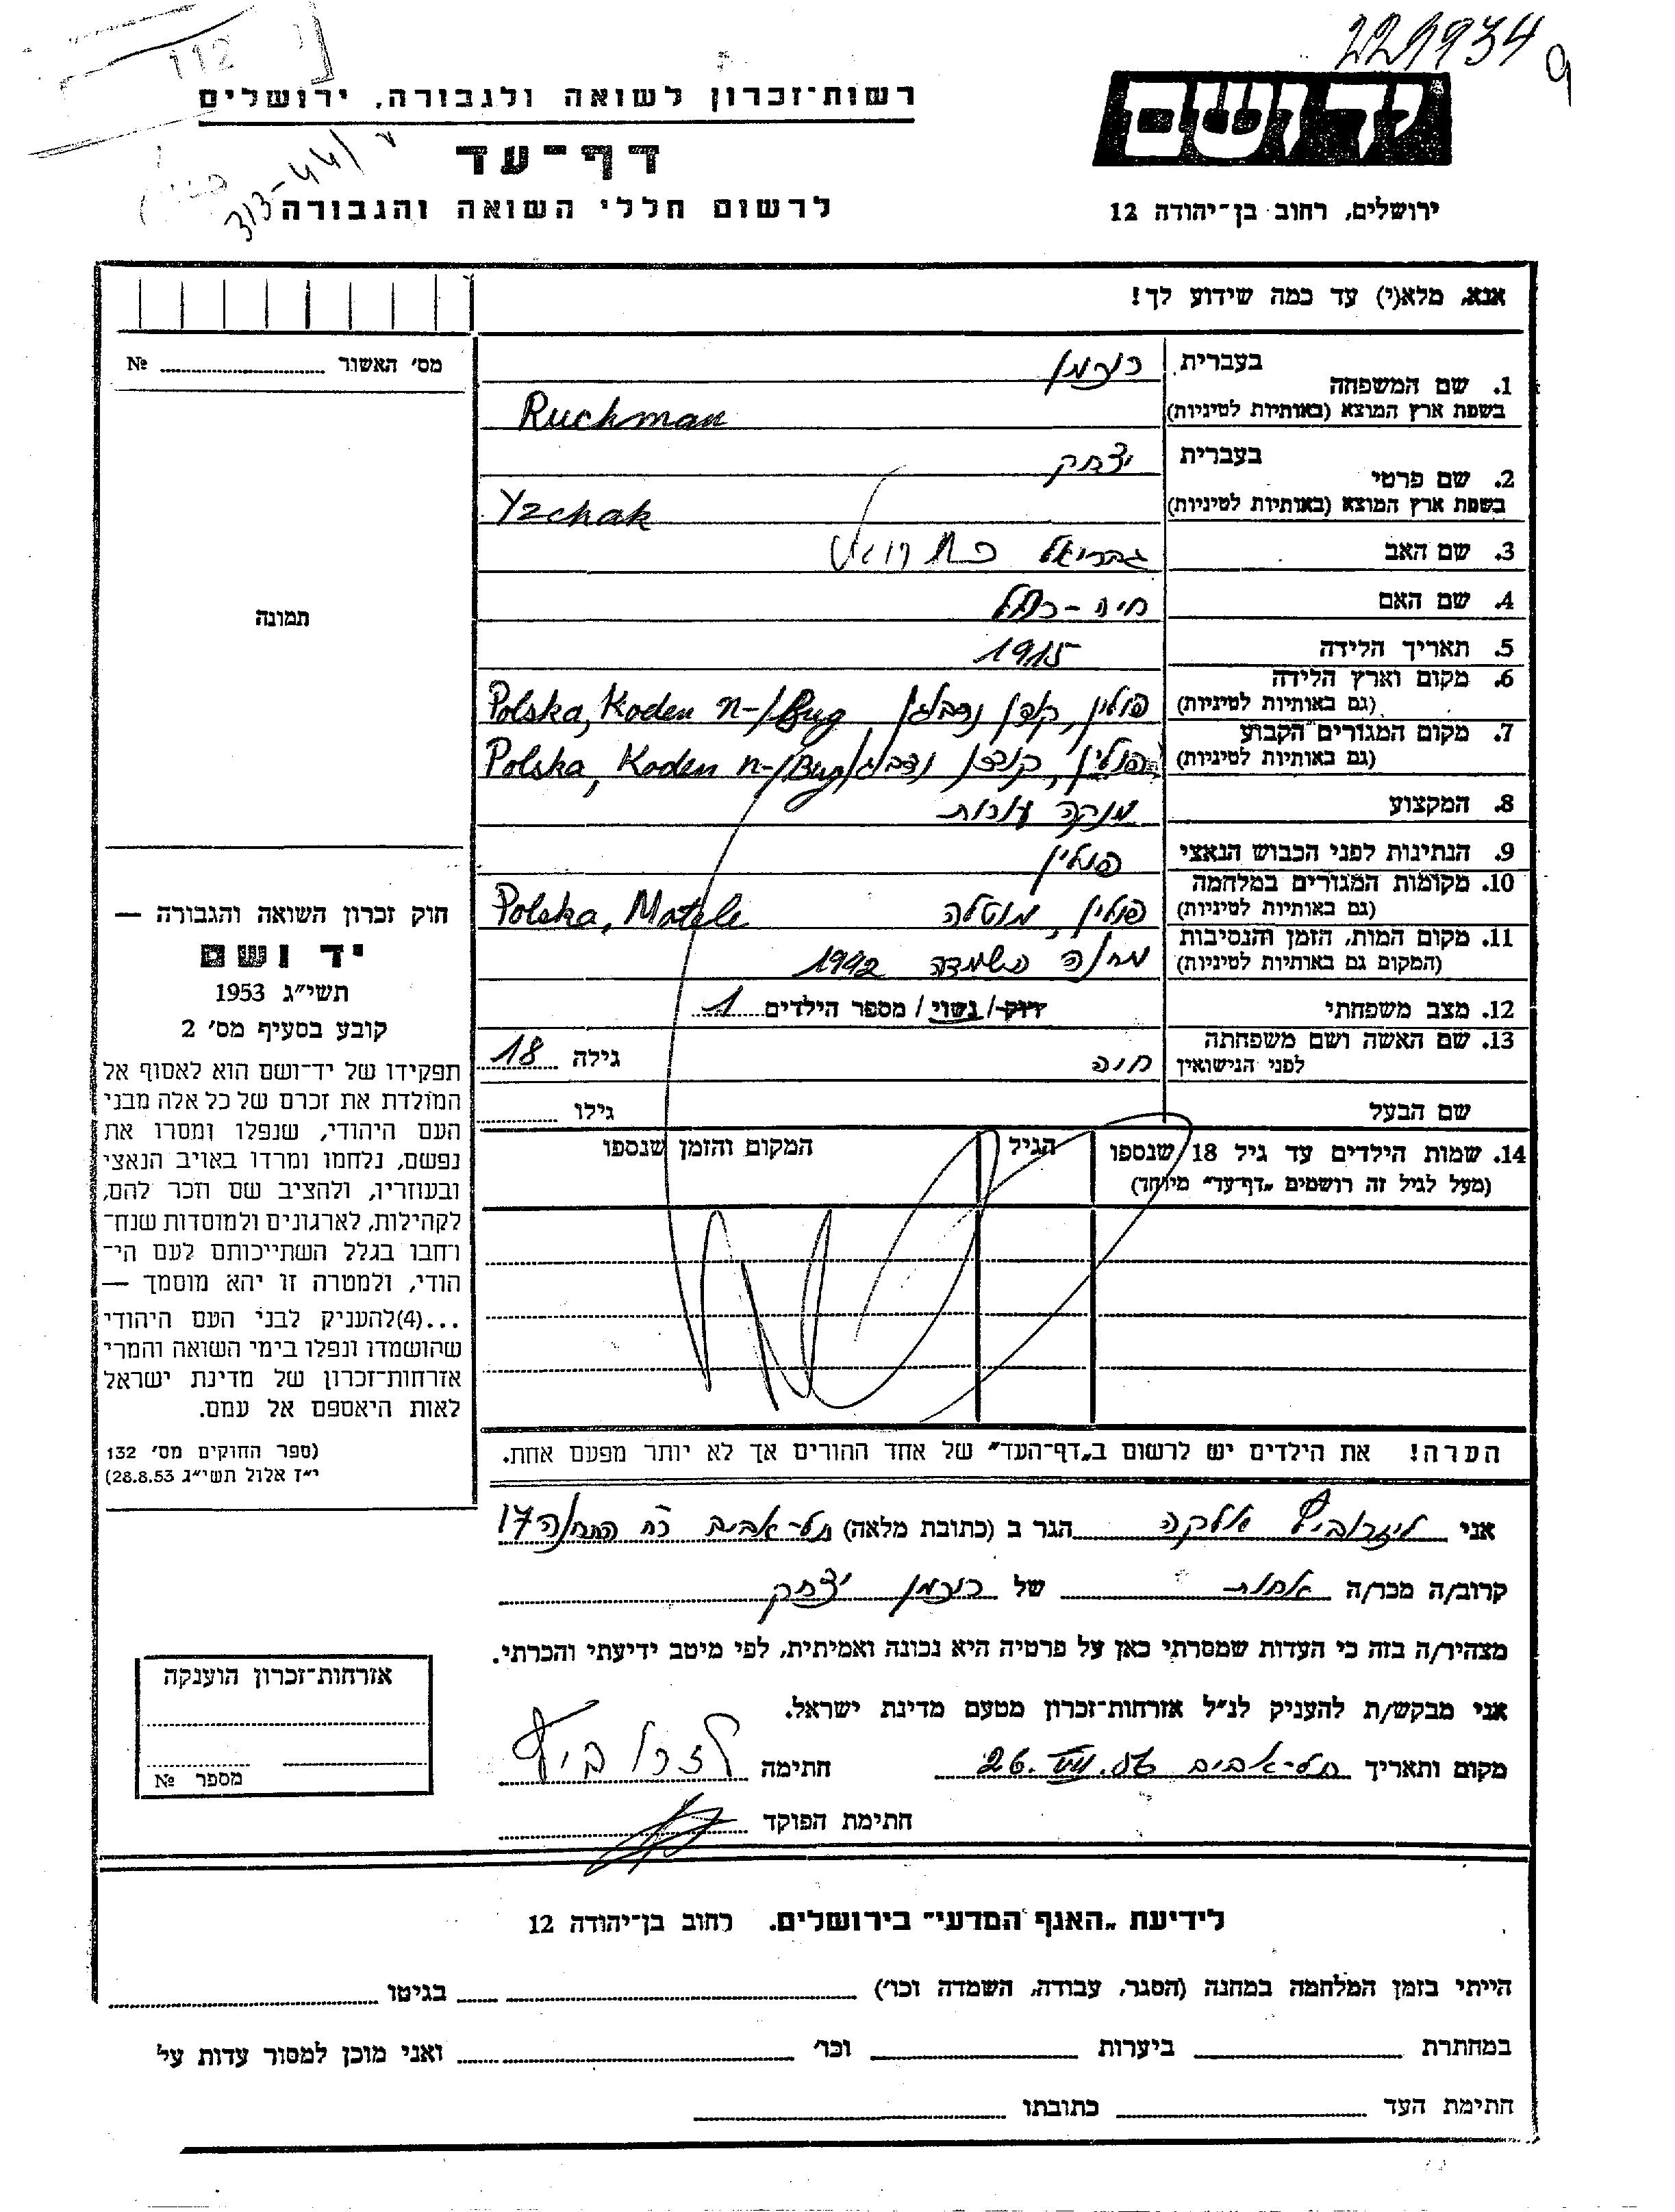 221934
112
ידושם
רשות־זכרון לשואה ולגבורה, ירושלים
דף־עד
313-44/
לרשום חללי השואה והגבורה
ירושלים, רחוב בן־יהודה 12
אנא, מלא(י) עד כמה שידוע לך!
מס' האשור № 
1. שם המשפחה בעברית רוכמן
בשפת ארץ המוצא (באותיות לטיניות) Ruchman
2. שם פרטי בעברית יצחק
בשפת ארץ המוצא (באותיות לטיניות) Yzchak
3. שם האב גבריאל
4. שם האם חיה-רחל
5. תאריך הלידה 1915
6. מקום וארץ הלידה
(גם באותיות לטיניות) פולין, קודן נדבוג Polska, Koden n-/Bug
7. מקום המגורים הקבוע
(גם באותיות לטיניות) פולין, קודן נדבוג Polska, Koden n-/Bug
8. המקצוע מנקה עורות
9. הנתינות לפני הכבוש הנאצי פולין
10. מקומות המגורים במלחמה
(גם באותיות לטיניות) פולין, מוטלה Polska, Motele
11. מקום המות, הזמן והנסיבות
(המקום גם באותיות לטיניות) מחנה השמדה 1942
12. מצב משפחתי רווק / נשוי / מספר הילדים 1
13. שם האשה ושם משפחתה
לפני הנישואין חנה גילה 18
שם הבעל גילו
14. שמות הילדים עד גיל 18 שנספו הגיל המקום והזמן שנספו
(מעל לגיל זה רושמים „דף־עד" מיוחד)
הערה! את הילדים יש לרשום ב„דף־העד" של אחד ההורים אך לא יותר מפעם אחת.
תמונה
חוק זכרון השואה והגבורה —
יד ושם
תשי״ג 1953
קובע בסעיף מס' 2
תפקידו של יד־ושם הוא לאסוף אל
המולדת את זכרם של כל אלה מבני
העם היהודי, שנפלו ומסרו את
נפשם, נלחמו ומרדו באויב הנאצי
ובעוזריו, ולהציב שם וזכר להם,
לקהילות, לארגונים ולמוסדות שנח־
רחבו בגלל השתייכותם לעם הי־
הודי, ולמטרה זו יהא מוסמך —
...(4)להעניק לבני העם היהודי
שהושמדו ונפלו בימי השואה והמרי
אזרחות־זכרון של מדינת ישראל
לאות היאספם אל עמם.
(ספר החוקים מס' 132
י״ז אלול תשי״ג 28.8.53)
אני אלקה הגר ב (כתובת מלאה) תל-אביב רח 17
קרוב/ה מכר/ה אחות של רוכמן יצחק
מצהיר/ה בזה כי העדות שמסרתי כאן על פרטיה היא נכונה ואמיתית, לפי מיטב ידיעתי והכרתי.
אני מבקש/ת להעניק לנ״ל אזרחות־זכרון מטעם מדינת ישראל.
מקום ותאריך תל-אביב 26. VIII. חתימה
חתימת הפוקד
אזרחות־זכרון הוענקה
מספר №
לידיעת „האגף המדעי" בירושלים. רחוב בן־יהודה 12
הייתי בזמן המלחמה במחנה (הסגר, עבודה, השמדה וכו') בגיטו
במחתרת ביערות וכו' ואני מוכן למסור עדות על
חתימת העד כתובתו